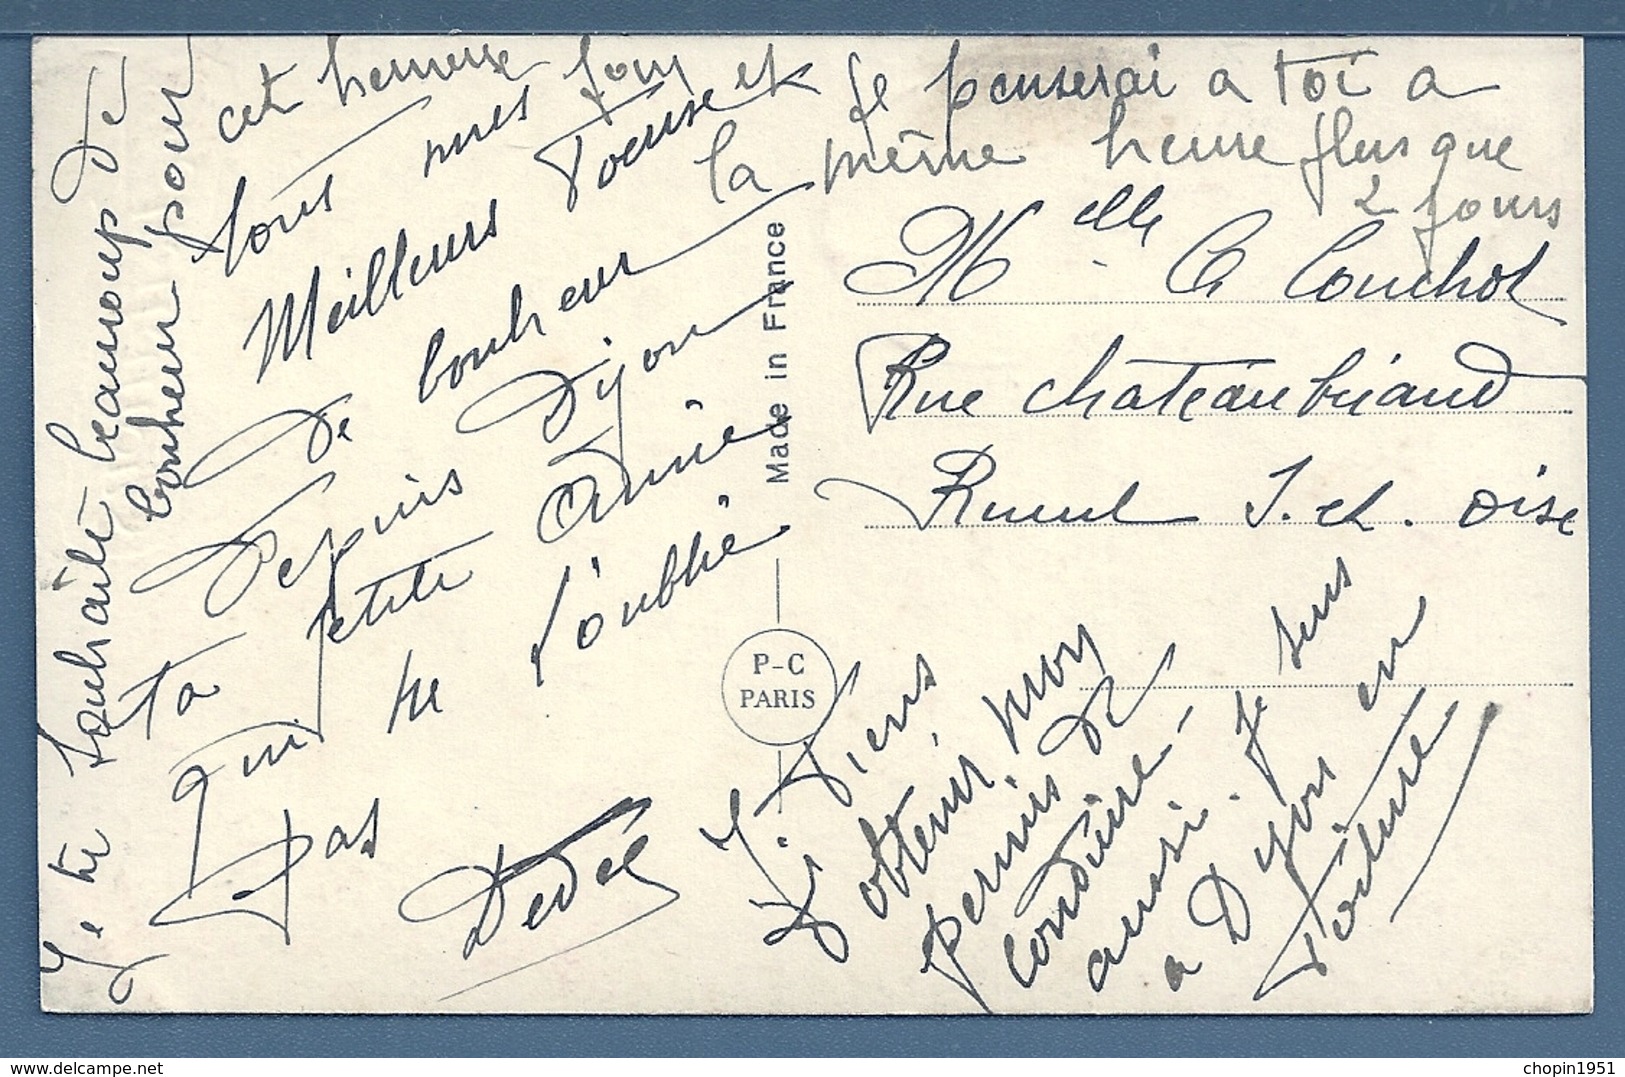 Je te souhaite beaucoup de
bonheur pour
cet heureuse jour
tous mes
Meilleurs Voeux et
de bonheur
depuis Dijon
ta petite Amie
qui ne t'oublie
pas
Dedée
Je penserai a toi a
la même heure plus que
2 jours
Melle G Couchot
Rue chateaubriand
Rueil S. et. oise
Made in France
P-C
PARIS
Je viens
d'obtenir mon
permis de
conduire
aussi. Je suis
a Dijon en
voiture
delcampe.net
chopin1951